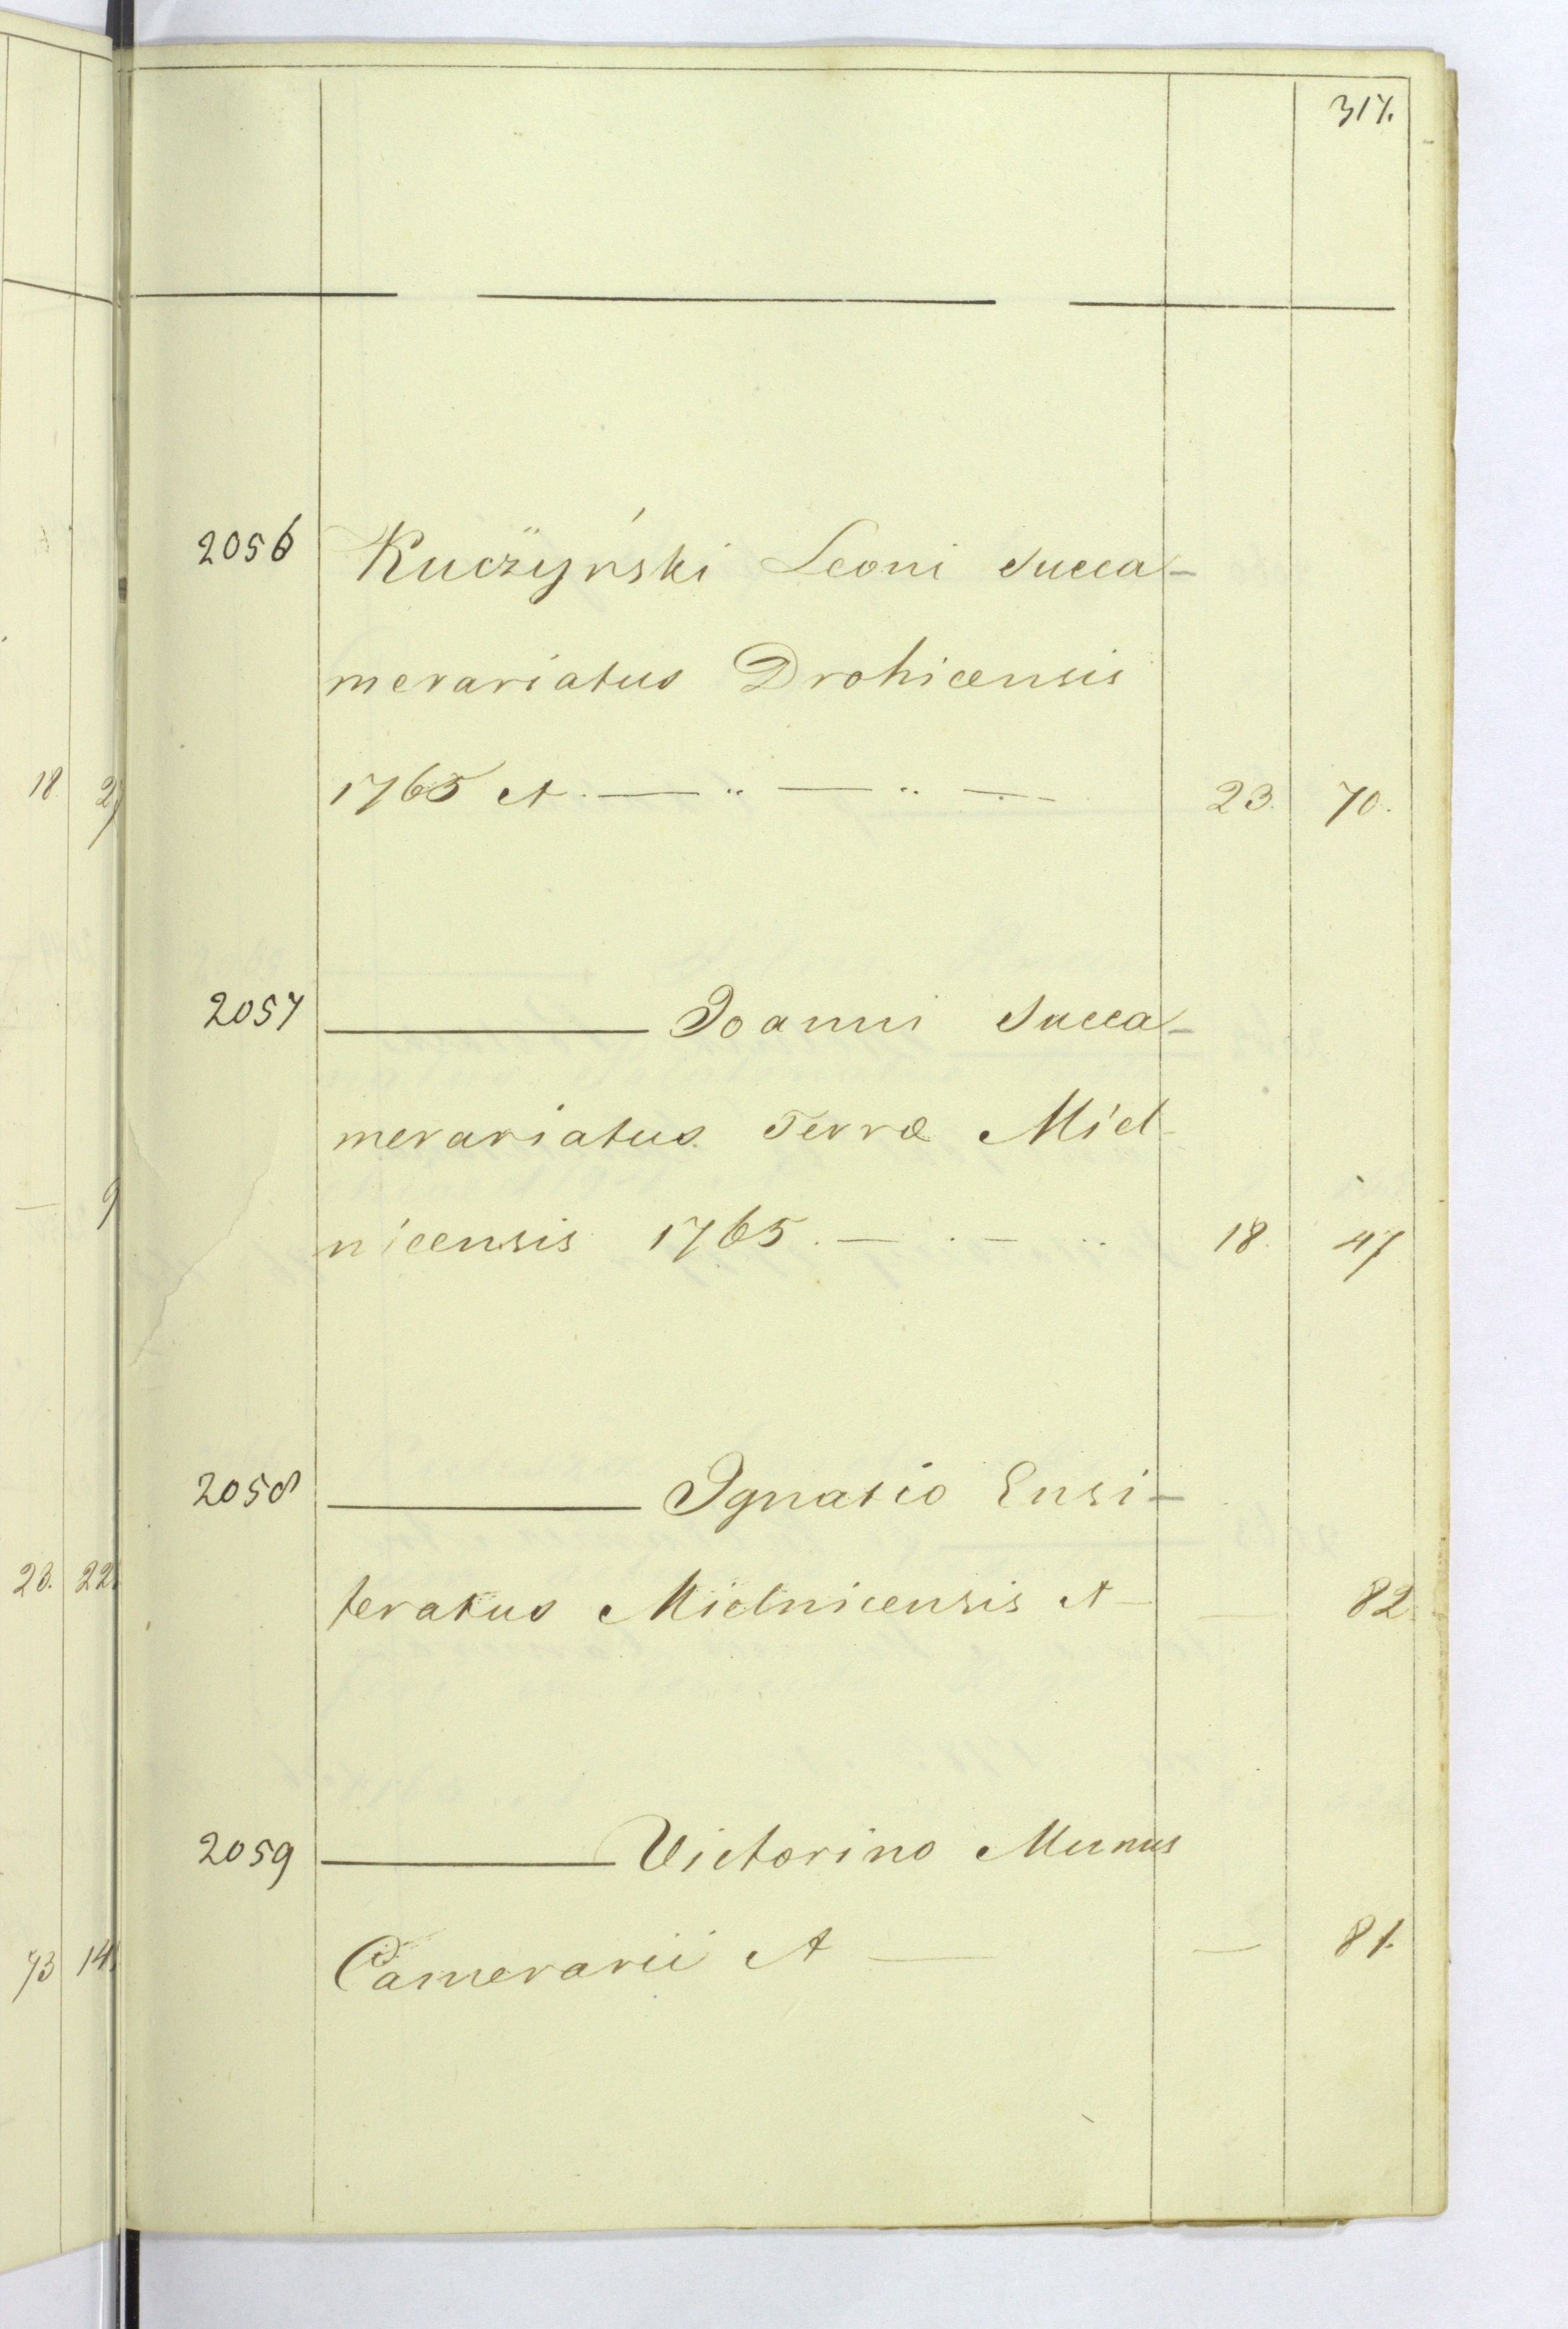 317.
2056 Kuczyński Leoni Succa-
merariatus Drohicensis
1765 et. — .. — .. — 23. 70.
2057 ——— Joanni Succa-
merariatus Terræ Miel-
nicensis 1765. — . — .. 18. 47
2058 ——— Ignatio Ensi-
feratus Mielnicensis et — — 82.
2059 ——— Victorino Munus
Camerarii et — — 81.
18. 2
— 9
23. 22.
73 14.